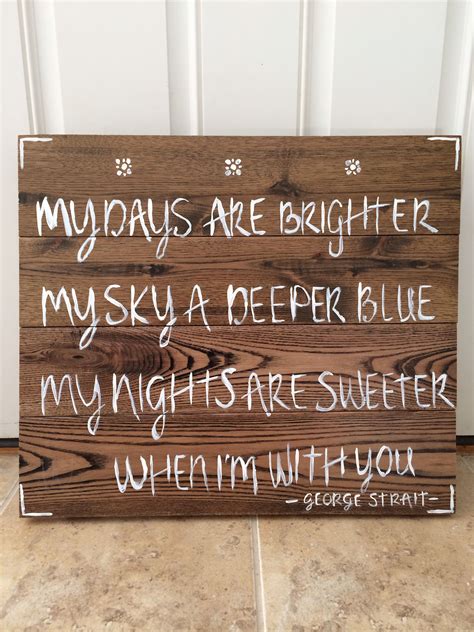 MY DAYS ARE BRIGHTER
MY SKY A DEEPER BLUE
MY NIGHTS ARE SWEETER
WHEN I'M WITH YOU
-GEORGE STRAIT-